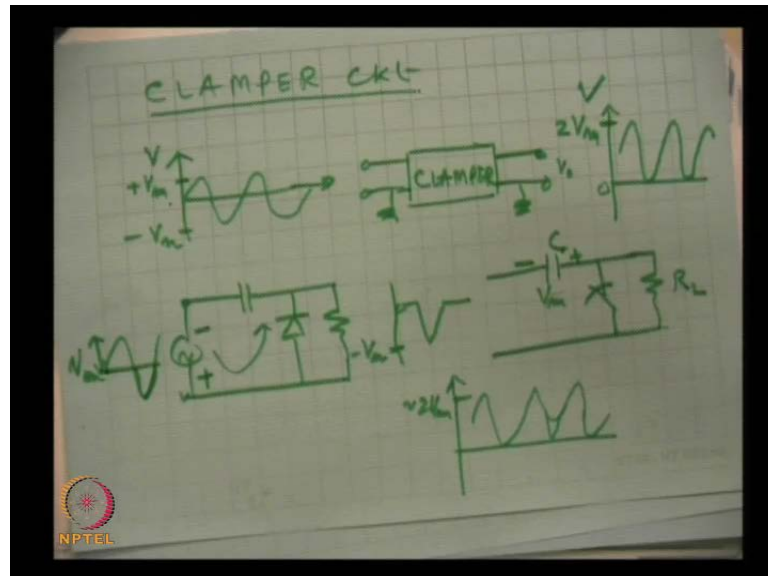 CLAMPER CKt
V
+Vm
-Vm
CLAMPER
Vo
V
2Vm
0
Vm
-
+
-Vm
- C +
Vm
RL
~2Vm
NPTEL